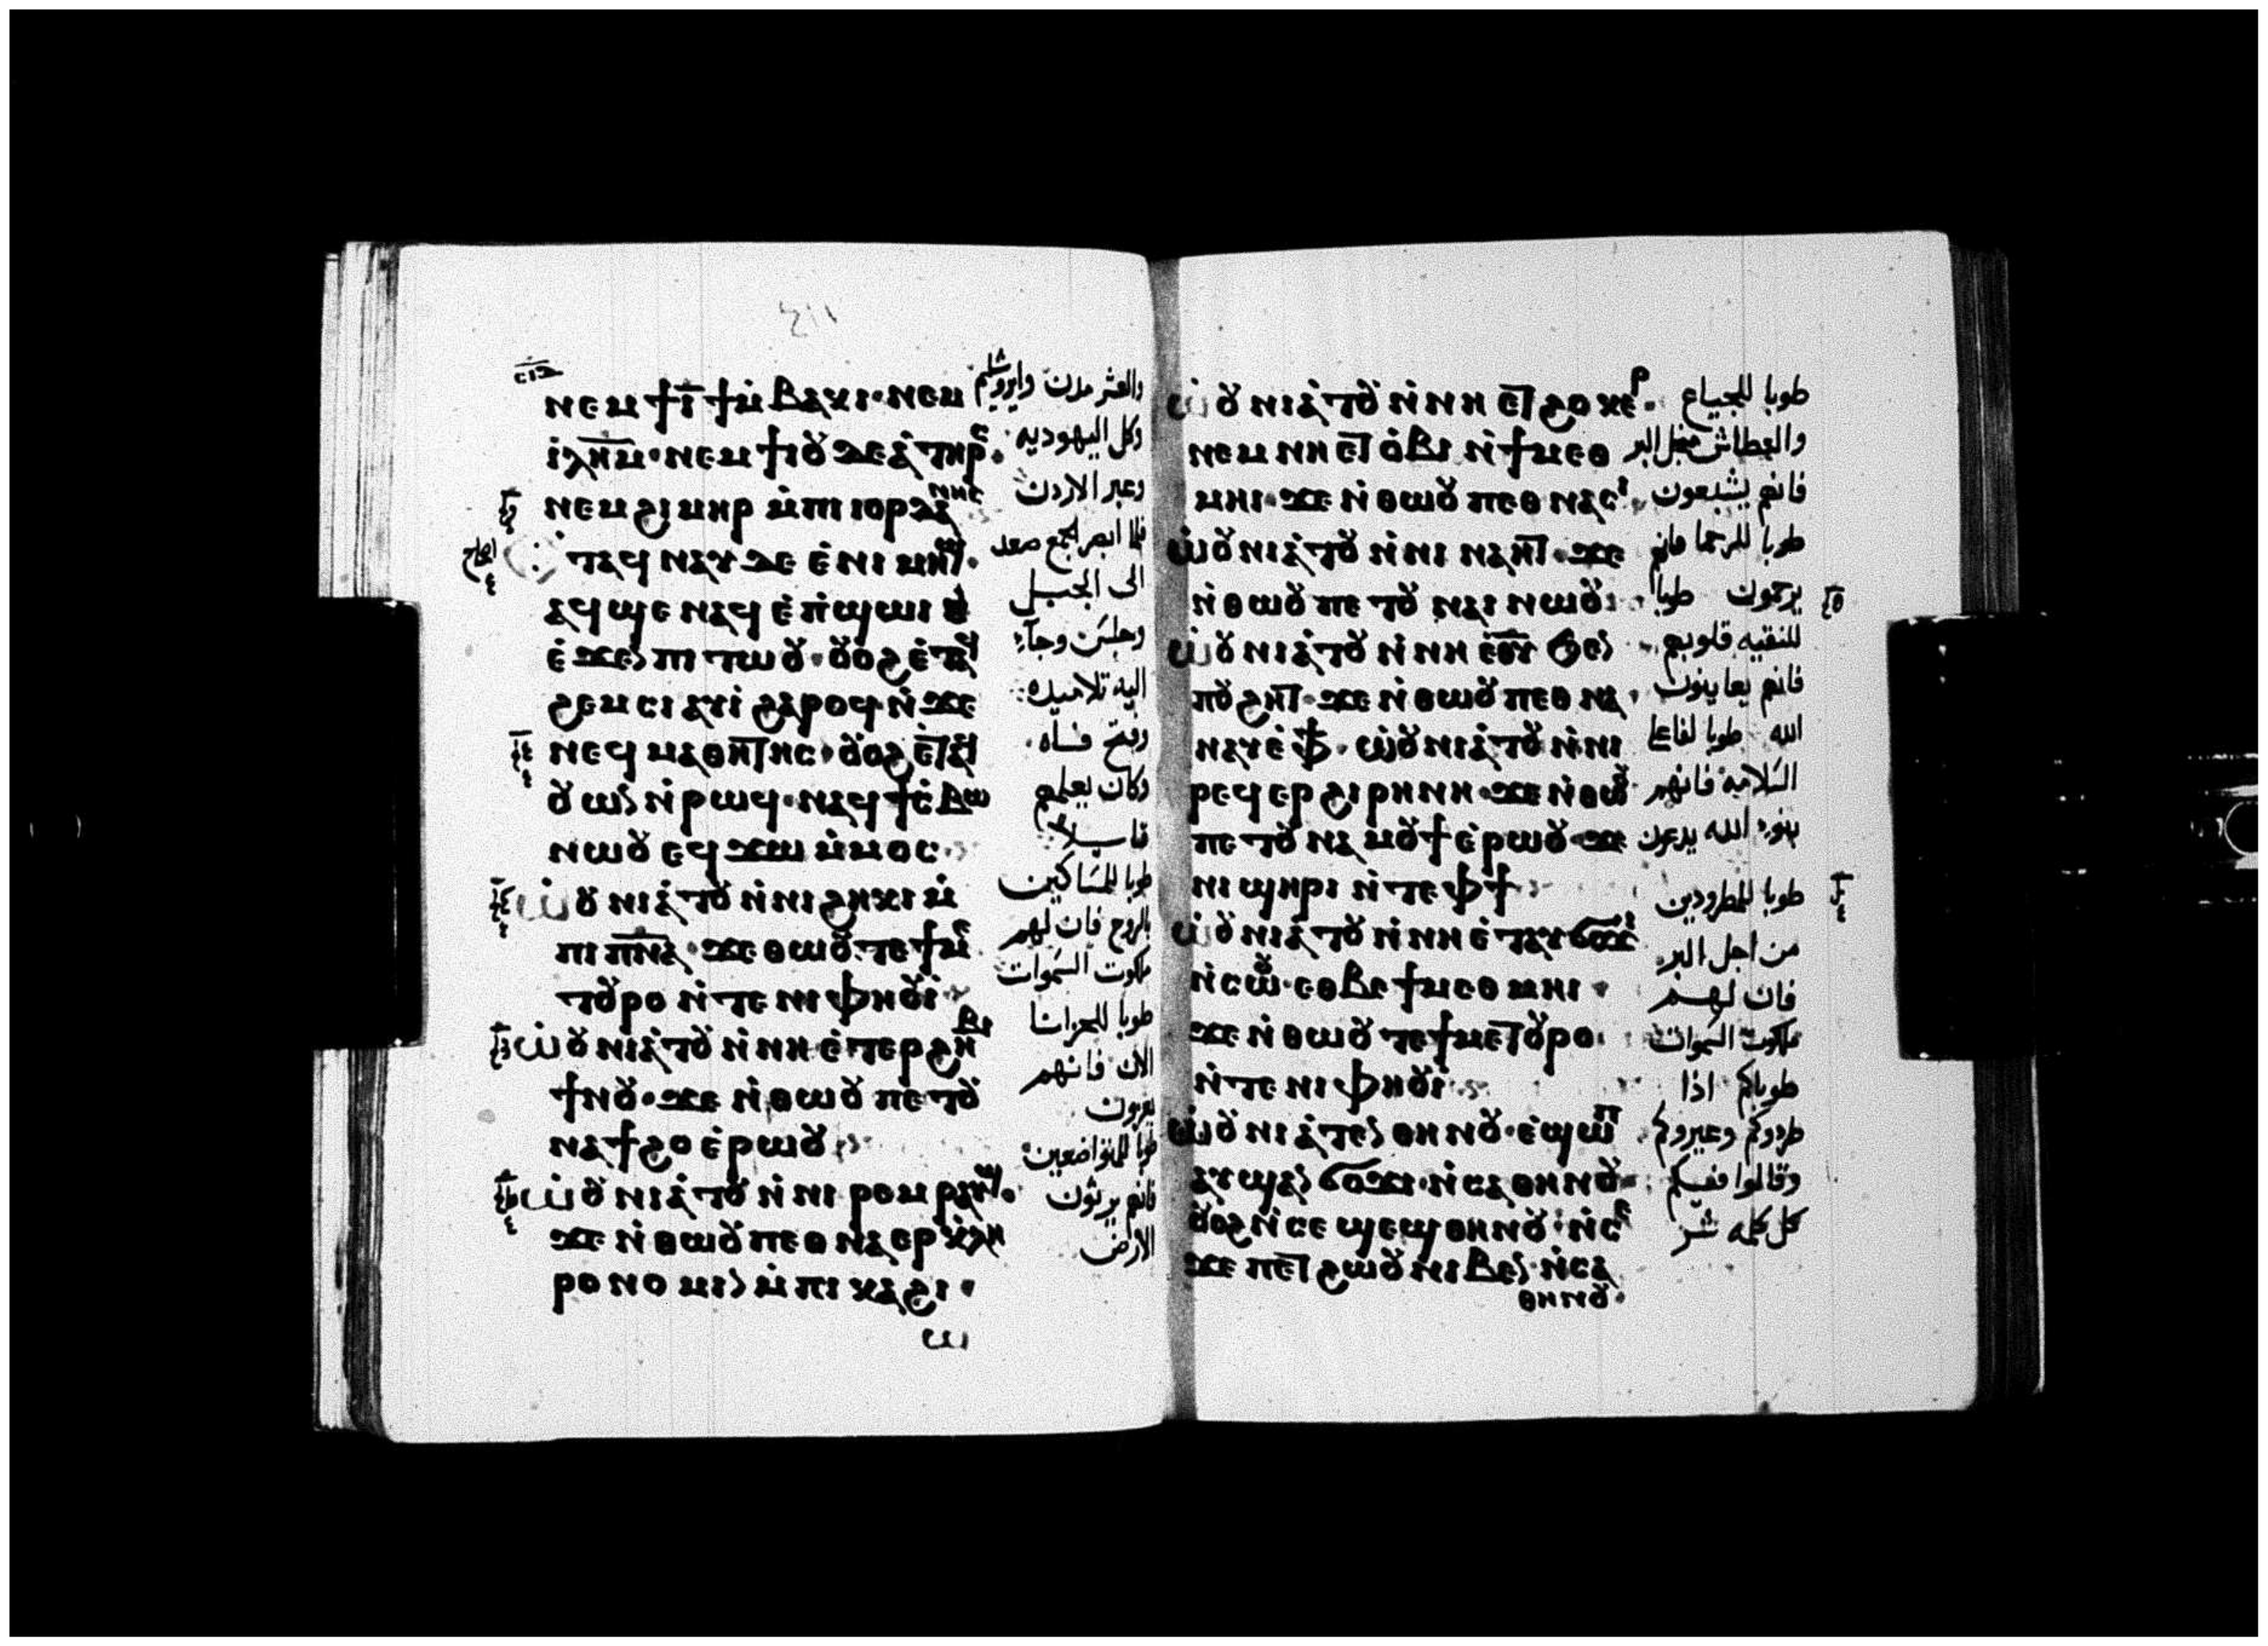 ⲛⲉⲙ ϯⲓ̅ ϯⲙ̇ⲃⲁⲕⲓ· ⲛⲉⲙ
ⲓ̇ⲗ̅ⲏ̅ⲙ̅· ⲛⲉⲙ ϯⲓⲟⲩⲇⲉⲁ̇ ⲧⲏⲣⲥ·
ⲛⲉⲙ ϩⲓⲙⲏⲣ ⲙ̇ⲡⲓⲓⲟⲣⲇⲁⲛⲏⲥ
ⲧⲁϥⲛⲁⲩ ⲇⲉ ⲉ̇ⲛⲓⲙⲏϣ·
ⲁϥϣⲉ ⲛⲁϥ ⲉ̇ⲡ̇ϣⲱⲓ
ⲉ̇ϫⲉⲛ ⲡⲓⲧⲱⲟⲩ· ⲟⲩⲟϩ ⲉ̇ⲧⲁϥ
ϩⲉⲙⲥⲓ ⲁⲩⲓ̇ ϩⲁⲣⲟϥ ⲛ̇ϫⲉ
ⲛⲉϥⲙⲁⲑⲏⲧⲏⲥ· ⲟⲩⲟϩ ⲉ̇ⲧⲁϥ
ⲟⲩⲱⲛ ⲛ̇ⲣⲱϥ· ⲛⲁϥϯⲥ̇ⲃⲱ
ⲛⲱⲟⲩ ⲉϥϫⲱ ⲙ̇ⲙⲟⲥ
ⲱ̇ⲟⲩⲛⲓⲁ̇ⲧⲟⲩ ⲛ̇ⲛⲓϩⲏⲕⲓ ⲙ̇
ⲡⲓⲡ̅ⲛ̅ⲁ̅· ϫⲉ ⲑⲱⲟⲩ ⲧⲉ ϯⲙⲉ
ⲧⲟⲩⲣⲟ ⲛ̇ⲧⲉ ⲛⲓⲫⲏⲟⲩⲓ̇
ⲱ̇ⲟⲩⲛⲓⲁ̇ⲧⲟⲩ ⲛ̇ⲛⲏ ⲉ̇ⲧⲉⲣϩⲏⲃⲓ
ϯⲛⲟⲩ· ϫⲉ ⲛ̇ⲑⲱⲟⲩ ⲡⲉⲧⲟⲩ
ⲛⲁϯϩⲟ ⲉ̇ⲣⲱⲟⲩ
ⲱ̇ⲟⲩⲛⲓⲁ̇ⲧⲟⲩ ⲛ̇ⲛⲓⲣⲉⲙⲣⲁⲩϣ·
ϫⲉ ⲛ̇ⲑⲱⲟⲩ ⲡⲉⲑⲛⲁⲉⲣⲕ̇ⲗⲏ
ⲣⲟⲛⲟⲙⲓⲛ ⲙ̇ⲡⲓⲕⲁϩⲓ·
ⲱ
والعشر مدن وايروشليم
وكل اليهوديه
وعبر الاردن
فلما ابصر الجمع صعد
الى الجبل
وجلس وجآء
اليه تلاميذه
وفتح فاه
وكان يعلمهم
قايلا
طوبا للمساكين
بالروح فان لهم
ملكوت السموات
طوبا للحزانا
الان فانهم
يعزون
طوبا للمتواضعين
فانهم يرثون
الارض
ⲱ̇ⲟⲩⲛⲓⲁ̇ⲧⲟⲩ ⲛ̇ⲛⲏ ⲉⲧϩⲟⲕⲉⲣ·
ⲛⲉⲙ ⲛⲏ ⲉⲧⲟ̇ⲃⲓ ⲛ̇ϯⲙⲉⲑ
ⲙⲏⲓ· ϫⲉ ⲛ̇ⲑⲱⲟⲩ ⲡⲉⲑⲛⲁⲥⲓ
ⲱ̇ⲟⲩⲛⲓⲁ̇ⲧⲟⲩ ⲛ̇ⲛⲓⲛⲁⲏⲧ· ϫⲉ
ⲛ̇ⲑⲱⲟⲩ ⲡⲉⲧⲟⲩⲛⲁⲓ ⲛⲱⲟⲩ
ⲱ̇ⲟⲩⲛⲓⲁ̇ⲧⲟⲩ ⲛ̇ⲛⲏ ⲉⲑ̅ⲩ̅ ϧⲉⲛ
ⲡⲟⲩϩⲏⲧ· ϫⲉ ⲛ̇ⲑⲱⲟⲩ ⲡⲉⲑⲛⲁ
ⲛⲁⲩ ⲉ̇ⲫϯ· ⲱ̇ⲟⲩⲛⲓⲁ̇ⲧⲟⲩ ⲛ̇ⲛⲓ
ⲣⲉϥⲉⲣϩⲓⲣⲏⲛⲏ· ϫⲉ ⲛ̇ⲑⲱⲟⲩ
ⲡⲉⲧⲟⲩⲛⲁⲙⲟⲩϯ ⲉ̇ⲣⲱⲟⲩ· ϫⲉ
ⲛⲓϣⲏⲣⲓ ⲛ̇ⲧⲉ ⲫϯ
ⲱ̇ⲟⲩⲛⲓⲁ̇ⲧⲟⲩ ⲛ̇ⲛⲏ ⲉ̇ⲧⲁⲩϭⲟϫⲓ
ⲛ̇ⲥⲱⲟⲩ· ⲉⲑⲃⲉ ϯⲙⲉⲑⲙⲏⲓ
ϫⲉ ⲛ̇ⲑⲱⲟⲩ ⲧⲉ ϯⲙⲉⲧⲟⲩⲣⲟ
ⲛ̇ⲧⲉ ⲛⲓⲫⲏⲟⲩⲓ̇
ⲱ̇ⲟⲩⲛⲓⲁ̇ⲧⲉⲛ ⲑⲏⲛⲟⲩ· ⲉ̇ϣⲱⲡ
ⲁⲩϣⲁⲛ ϭⲟϫⲓ· ⲛ̇ⲥⲁ ⲑⲏⲛⲟⲩ
ⲟⲩⲟϩ ⲛ̇ⲥⲉϣⲉϣ ⲑⲏⲛⲟⲩ· ⲛ̇ⲥⲉ
ϫⲉ ⲡⲉⲧϩⲱⲟⲩ ⲛⲓⲃⲉⲛ ⲛ̇ⲥⲁ
ⲑⲏⲛⲟⲩ·
طوبا للجياع
والعطاش من اجل البر
فانهم يشبعون
طوبا للرحما فانهم
يرحمون طوبا
للنقيه قلوبهم
فانهم يعاينون
الله طوبا لفاعلي
السلامه فانهم
بنو الله يدعون
طوبا للمطرودين
من اجل البر
فان لهم
ملكوت السموات
طوباكم اذا
طردوكم وعيروكم
وقالوا فيكم
كل كلمه شر